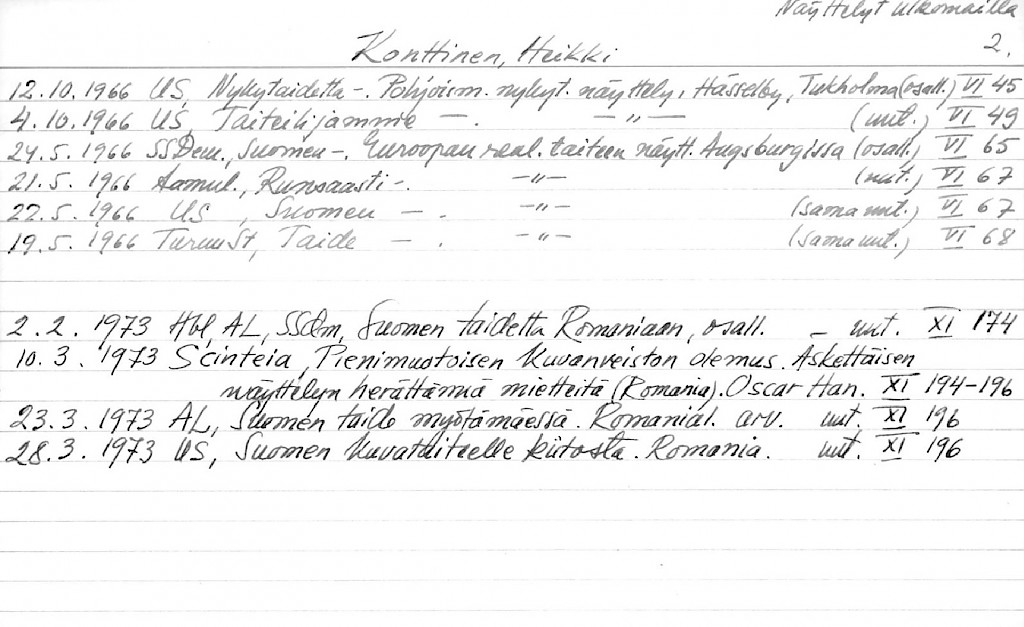 Näyttelyt ulkomailla
2.
Konttinen, Heikki
12.10.1966 US, Nykytaidetta -. Pohjoism. nykyt. näyttely, Hässelby, Tukholma (osall.) VI 45
4.10.1966 US, Taiteilijamme -. -"- (uut.) VI 49
24.5.1966 SSDem., Suomen -. Euroopan real. taiteen näytt. Augsburgissa (osall.) VI 65
21.5.1966 Aamul., Runsaasti -. -"- (uut.) VI 67
22.5.1966 US, Suomen -. -"- (sama uut.) VI 67
19.5.1966 TurunSt, Taide -. -"- (sama uut.) VI 68
2.2.1973 Hbl, AL, SSdm, Suomen taidetta Romaniaan, osall. - uut. XI 174
10.3.1973 Scinteia, Pienimuotoisen kuvanveiston olemus. Askettäisen
näyttelyn herättämiä mietteitä (Romania). Oscar Han. XI 194-196
23.3.1973 AL, Suomen taide myötämäessä. Romanial. arv. uut. XI 196
28.3.1973 US, Suomen kuvataiteelle kiitosta. Romania. uut. XI 196